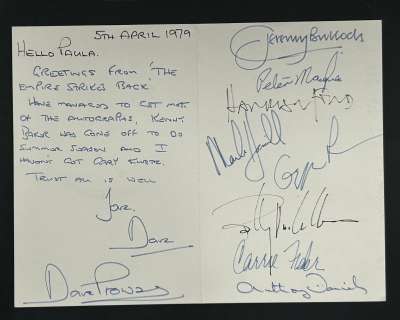 5TH APRIL 1979
HELLO PAULA.
GREETINGS FROM 'THE
EMPIRE STRIKES BACK'
HAVE MANAGED TO GET MOST
OF THE AUTOGRAPHS, KENNY
BAKER HAS GONE OFF TO DO
SUMMER SEASON AND I
HAVEN'T GOT GARY KURTZ.
TRUST ALL IS WELL
Dave
Dave Prowse
Jeremy Bulloch
Peter Mayhew
HARRISON FORD
Mark Hamill
Billy Dee Williams
Carrie Fisher
Anthony Daniels